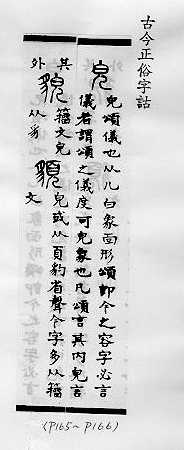 古今正俗字詁
皃 皃頌儀也从儿白象面形頌即今之容字必言
儀者謂頌之儀度可皃象也凡頌言其內皃言
其外
貌 籀文皃从豸
䫉 皃或从頁豹省聲今字多从籀文
(P165~P166)